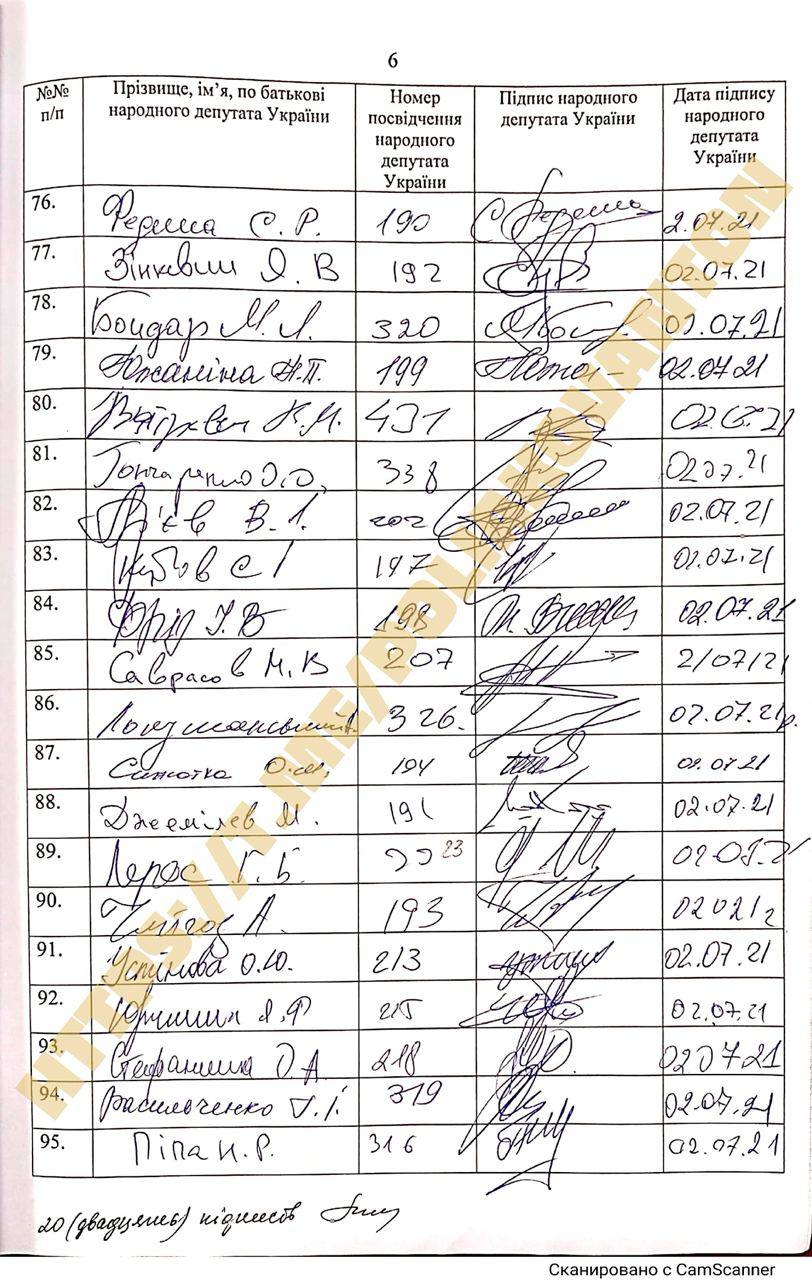 6
№№ п/п Прізвище, ім’я, по батькові народного депутата України Номер посвідчення народного депутата України Підпис народного депутата України Дата підпису народного депутата України
76. Федина С. Р. 190 2.07.21
77. Зінкевич Я. В 192 02.07.21
78. Бондар М. Л. 320 02.07.21
79. Южаніна Н.П. 199 02.07.21
80. К.М. 431
81. Гончаренко О.О. 338 02 07.21
82. В.І. 202 02.07.21
83. 197 02.07.21
84. Фріз І. В 198 02.07.21
85. Саврасов М. В 207 2/07/21
86. 326. 02.07.21р.
87. Синютка О.М. 194 02.07.21
88. Джемілєв М. 191 02.07.21
89. Лерос Г. Б. 23
90. Чийгоз А. 193
91. Устінова О.Ю. 213 02.07.21
92. Юрчишин Я.Р 215 02.07.21
93. Стефанишина О.А 218 02 07 21
94. Васильченко Г.І. 319 02.07.21
95. Піпа Н.Р. 316 02.07.21
20 (двадцять) підписів
HTTPS://T.ME/POLIAKOVANTON
Сканировано с CamScanner